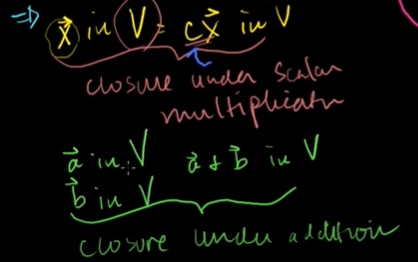 ⇒ x⃗ in V = cx⃗ in V
closure under scalar
multiplication
a⃗ in V a⃗ + b⃗ in V
b⃗ in V
closure under addition